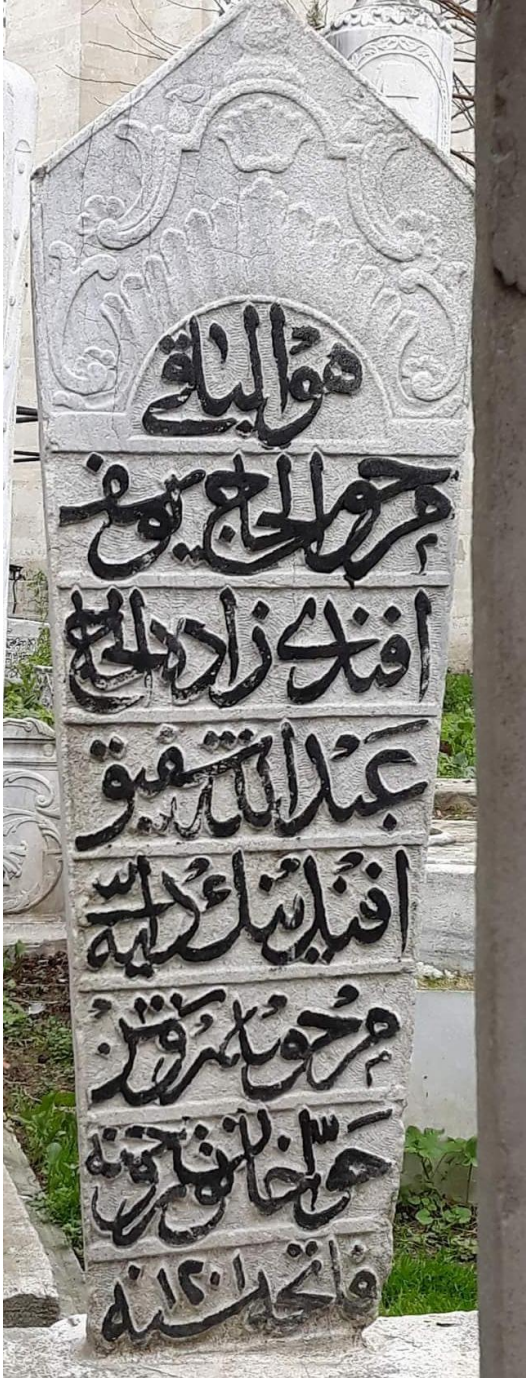 هو الباقي
مرحوم الحاج يوسف
افندی زاده الحاج
عبد الله شفيق
افندينك دايه
مرحومه
حوا خاتون روحنه
فاتحه سنه ١٢٠١